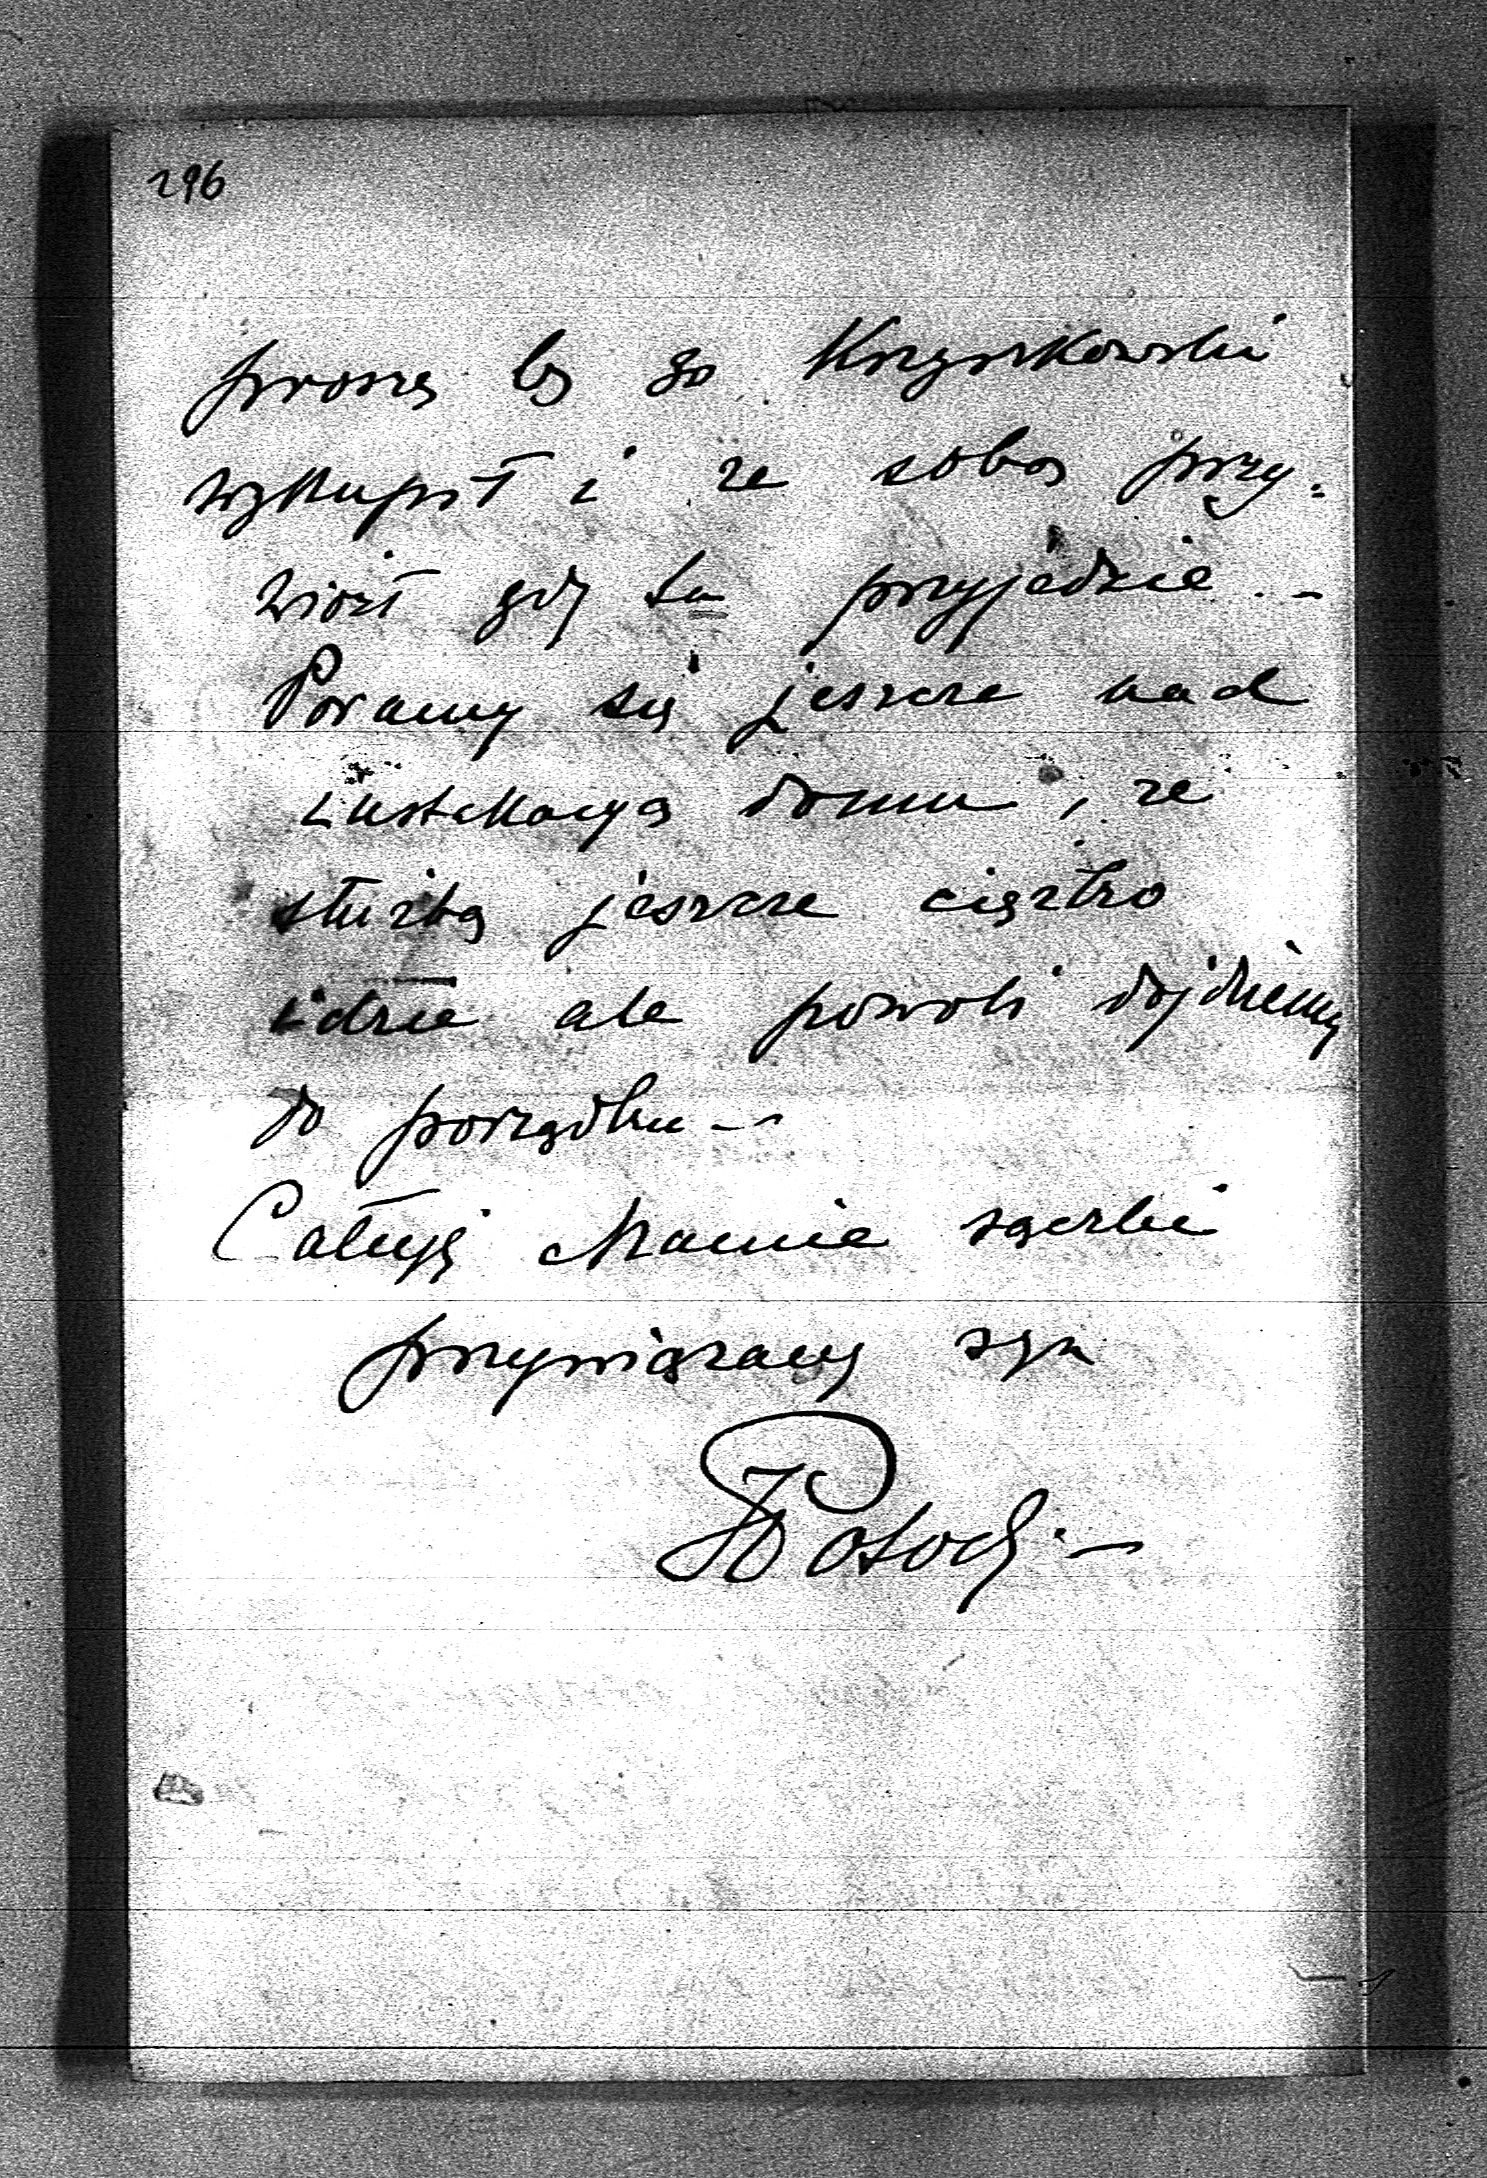 296
proszę by go Krzyszkowski
wykupił i ze sobą przy-
wiózł gdy tu przyjedzie -
Poramy się jeszcze nad
instalacyą domu, ze
służbą jeszcze ciężko
idzie ale powoli dojdziemy
do porządku -
Całuję Mamie rączki
przywiązany syn
JPotocki -